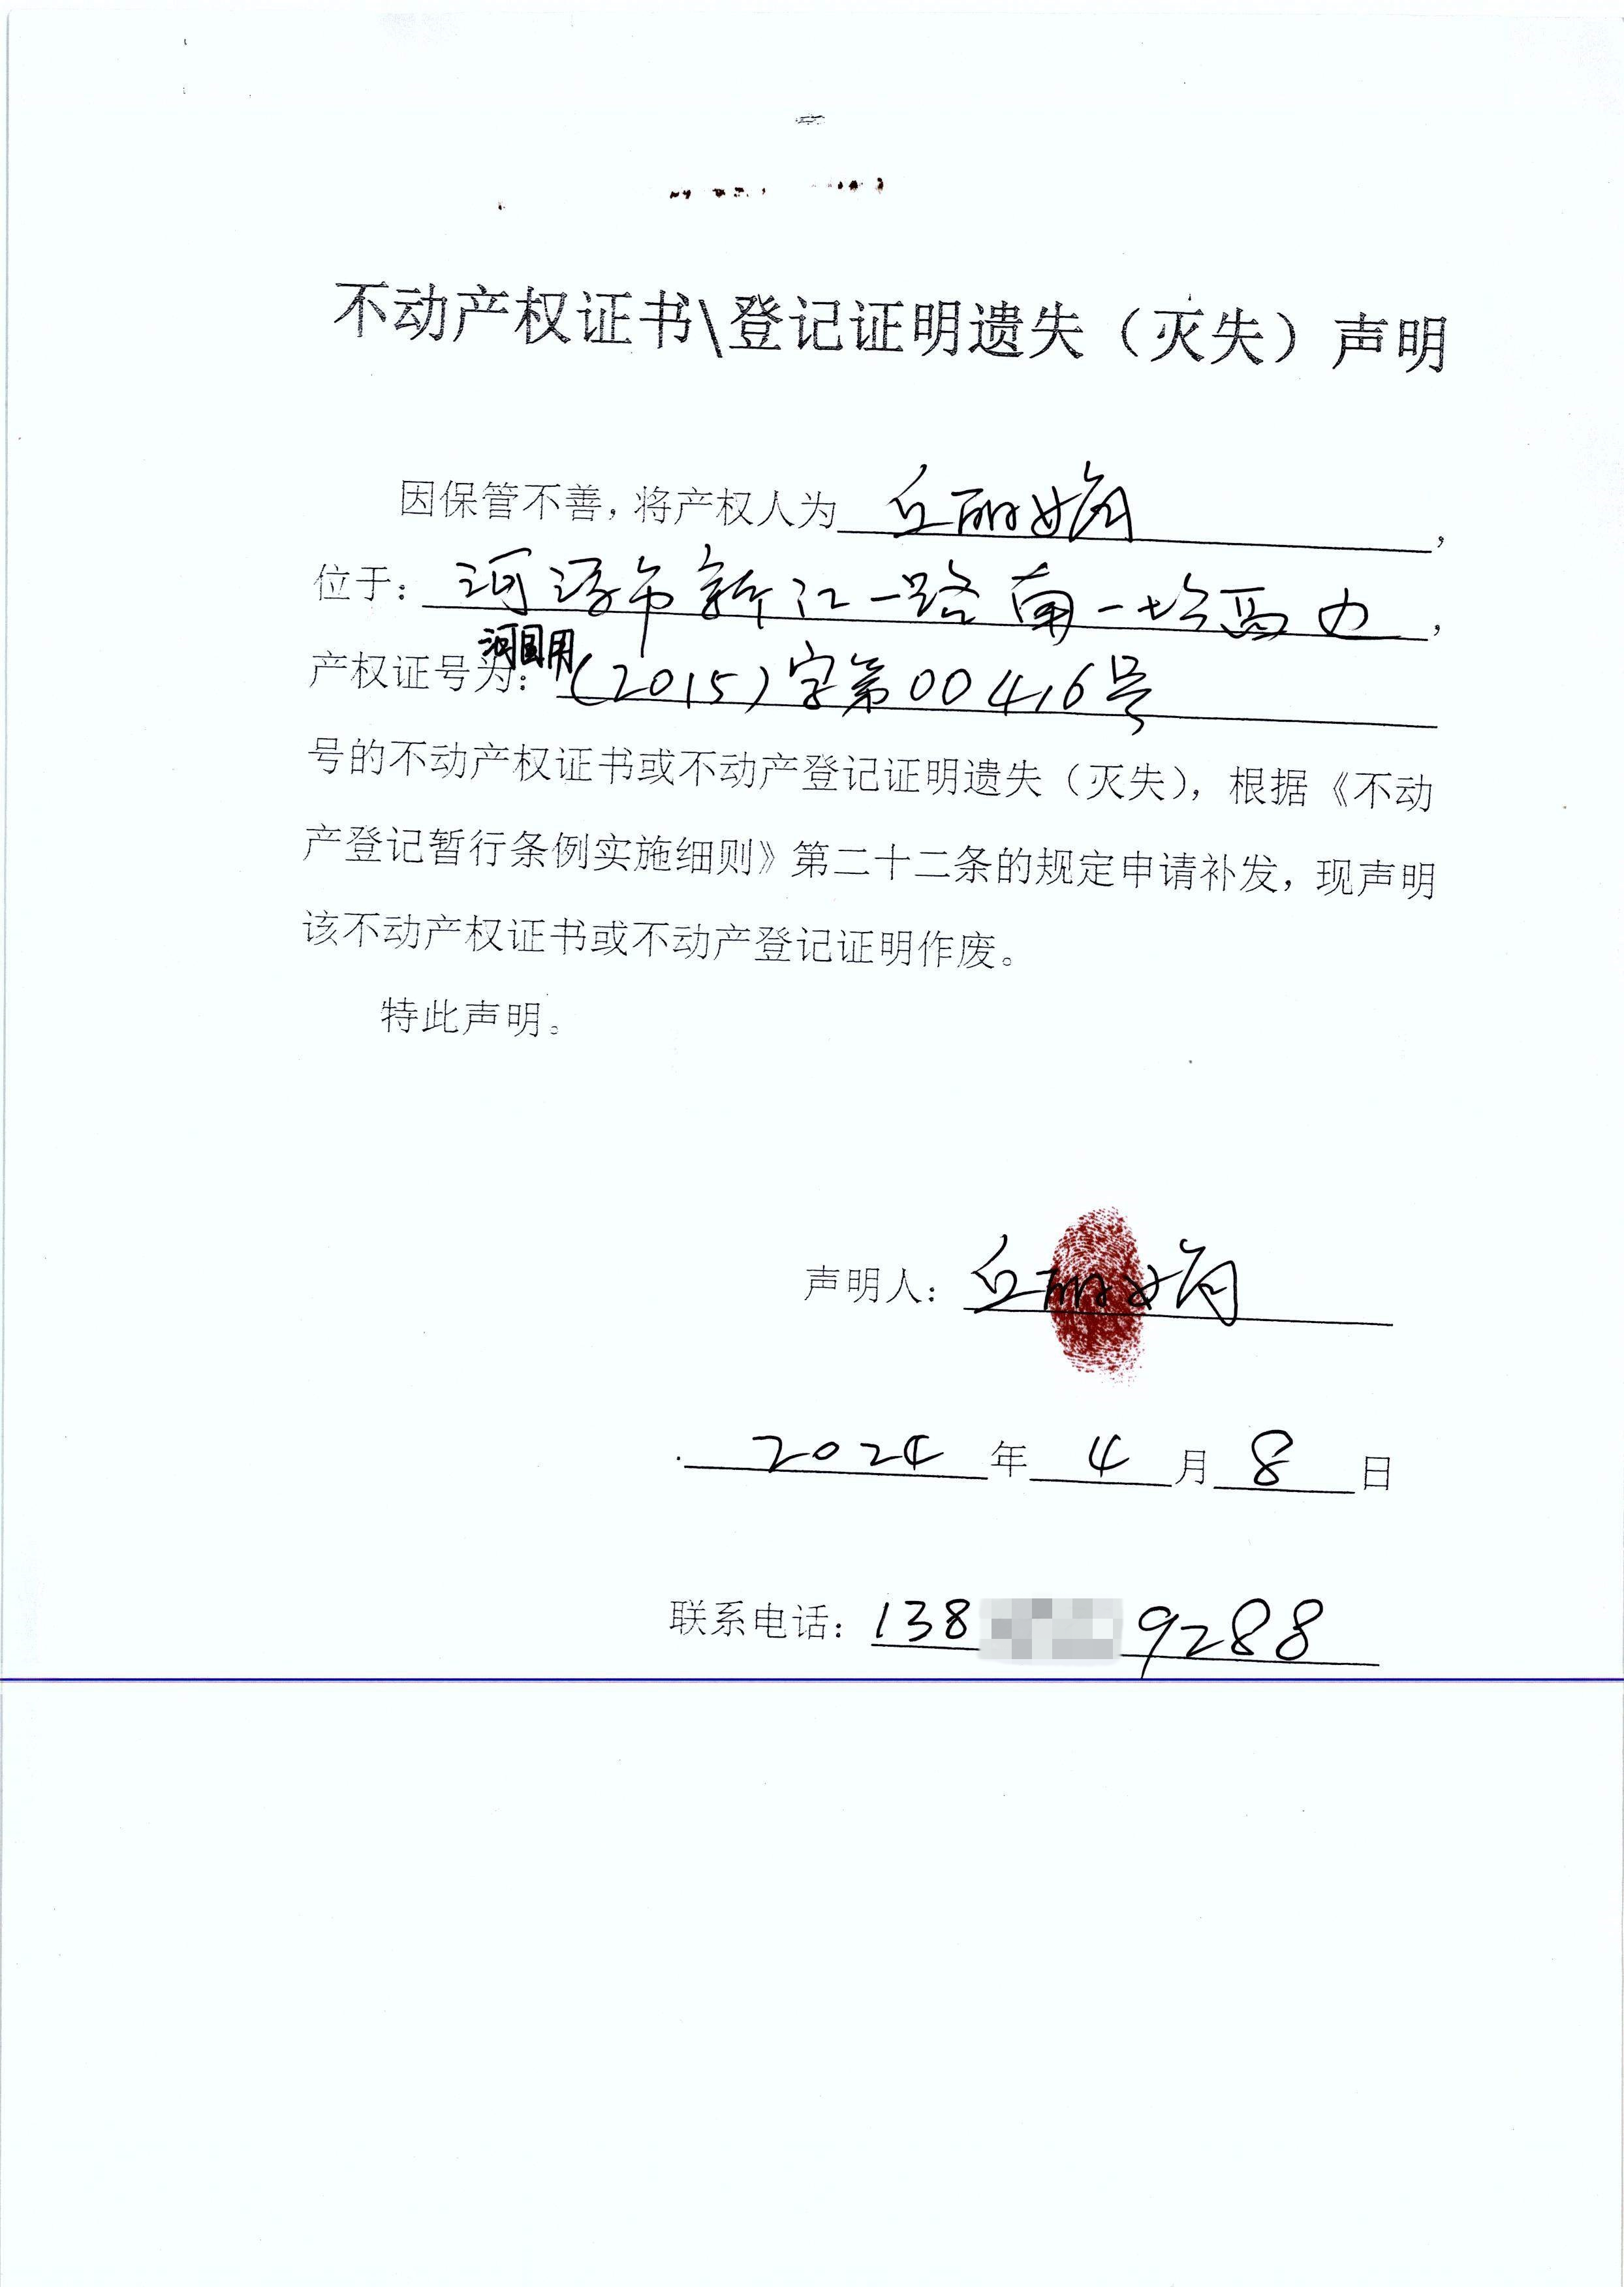 不动产权证书\登记证明遗失（灭失）声明
因保管不善，将产权人为 丘丽娟，
位于：河源市新江一路南一坎高边，
河国用
产权证号为：(2015)字第00416号
号的不动产权证书或不动产登记证明遗失（灭失），根据《不动
产登记暂行条例实施细则》第二十二条的规定申请补发，现声明
该不动产权证书或不动产登记证明作废。
特此声明。
声明人：丘丽娟
2024年4月8日
联系电话：138 9288